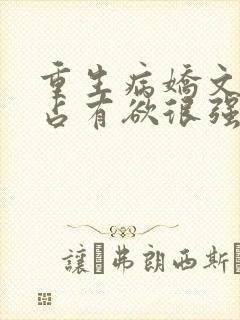 重生病嬌文
占有欲很强
讓 弗朗西斯